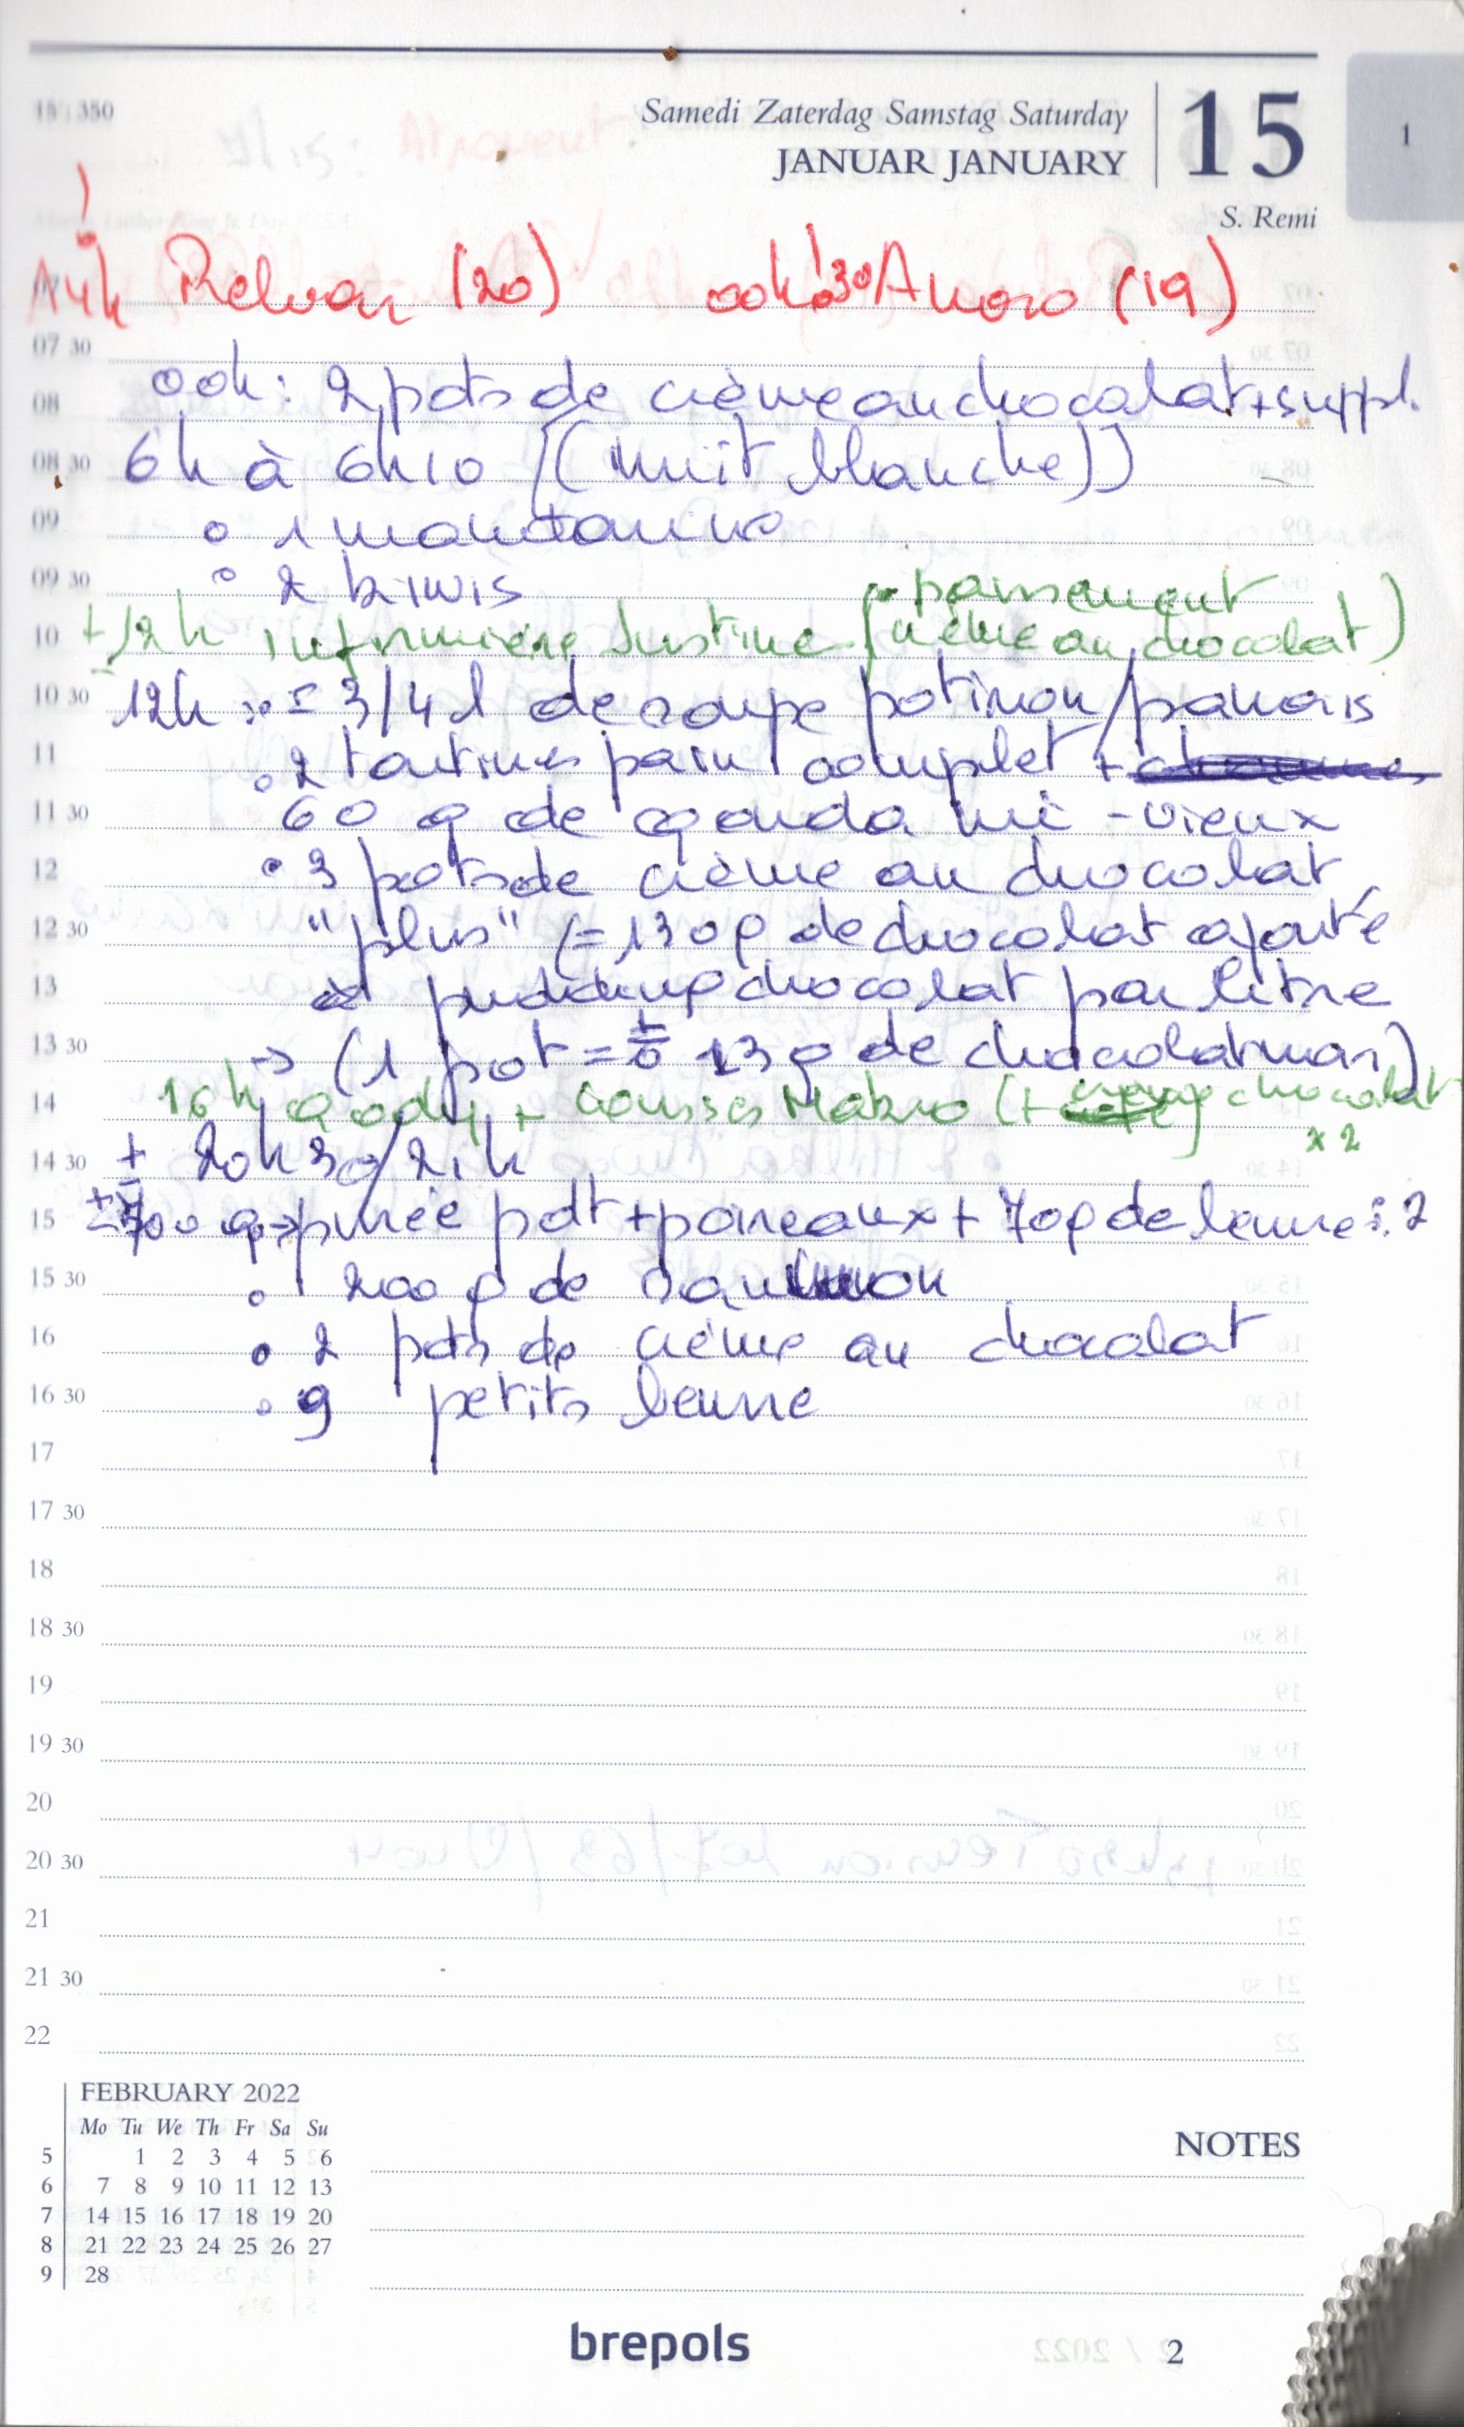 Samedi Zaterdag Samstag Saturday
JANUAR JANUARY
15
1
S. Remi
14h Relvar (20) 00h30 Anoro (19)
07 30
00h : 2 pots de crème au chocolat + suppl.
08
08 30
6h à 6h10 [(nuit blanche)]
09
° 1 mandarine
09 30
° 2 kiwis
• pansement
10
+/- 12h infirmière Justine (crème au chocolat)
10 30
12h : • ± 3/4 l de soupe potiron/panais
11
• 2 tartines pain complet +
11 30
60 g de gouda mi-vieux
12
• 3 pots de crème au chocolat
12 30
"plus" (= 130 g de chocolat ajouté
13
pudding chocolat par litre
13 30
→ (1 pot = ± 13 g de chocolat noir)
14
16h Gody + courses Makro (+ chocolat
x 2
14 30
± 20h30/21h
15
± 700 g → purée pdt + poireaux + 70g de beurre : 2
15 30
° 200 g de saumon
16
• 2 pots de crème au chocolat
16 30
• 9 petits beurre
17
17 30
18
18 30
19
19 30
20
20 30
21
21 30
22
FEBRUARY 2022
Mo Tu We Th Fr Sa Su
5 1 2 3 4 5 6
6 7 8 9 10 11 12 13
7 14 15 16 17 18 19 20
8 21 22 23 24 25 26 27
9 28
NOTES
brepols
2